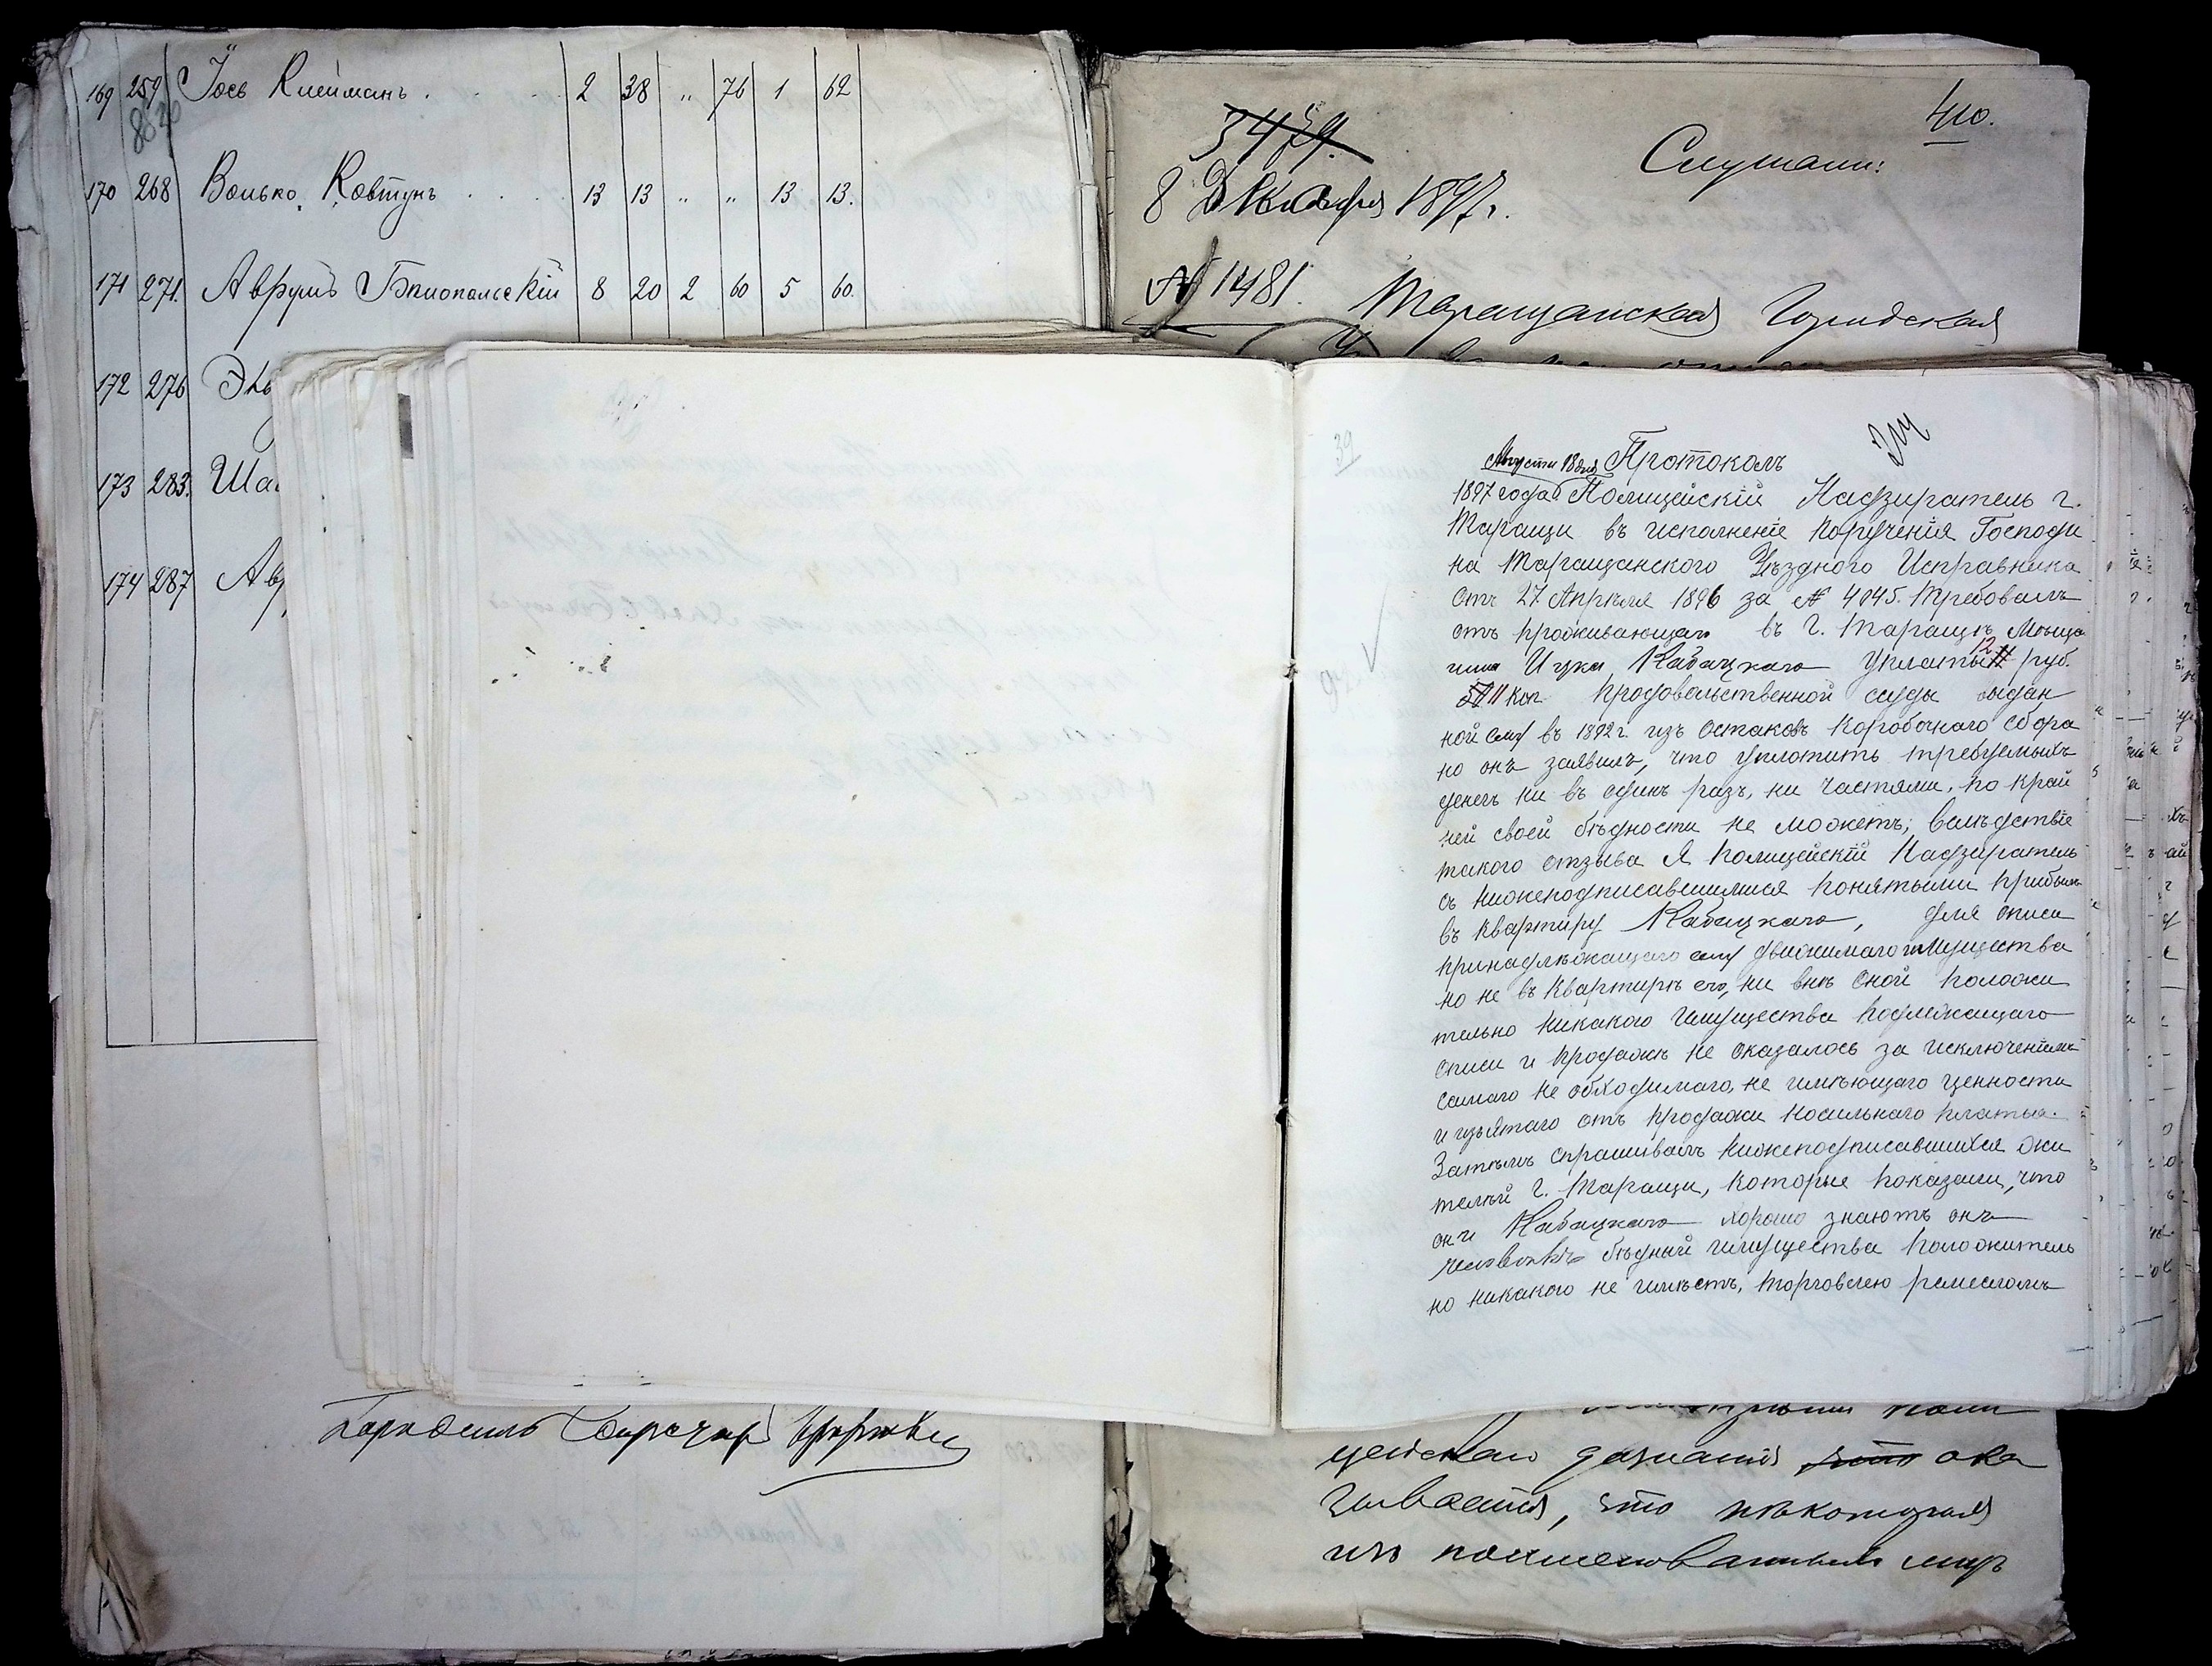 169 259 Іось Клейманъ . . . 2 38 „ 76 1 62
8020
170 268 Волько Ковтунъ . . . 13 13 „ „ 13 13.
171 271. Аврумъ Бялопольскій 8 20 2 60 5 60.
172 276
173 283.
174 287
410.
Слушали:
8 Декабря 1897 г.
№ 1481.
Таращанская Городская
39
314
Августа 18 дня Протоколъ
1897 года Полицейскій Надзиратель г.
Таращи въ исполненіе порученія Господи
на Таращанского Уѣздного Исправника
отъ 27 Апрѣля 1896 за № 4045. требовалъ
отъ проживающаго въ г. Таращѣ Мѣща
нина Ицка Кабацкаго уплаты 12 руб.
11 коп продовольственной ссуды выдан
ной ему въ 1892 г. изъ остаковъ коробочнаго сбора
но онъ заявилъ, что уплотить требуемыхъ
денегъ ни въ одинъ разъ, ни частями, по край
ней своей бѣдности не можетъ; вслѣдствіе
такого отзыва Я Полицейскій Надзиратель
съ нижеподписавшимися понятыми прибылъ
въ квартиру Кабацкаго, для описи
принадлѣжащаго ему движимаго имущества
но не въ квартирѣ его, ни внѣ оной положи
тельно никакого имущества подлежащаго
описи и продажѣ не оказалось за исключеніемъ
самаго не обходимаго, не имѣющаго ценности
и изъятаго отъ продажи носильнаго платья.
Затѣмъ спрашивалъ нижеподписавшихся жи
телей г. Таращи, которые показали, что
они Кабацкаго хорошо знаютъ онъ
человѣкъ бѣдный имущества положитель
но никакого не имѣетъ, торговлею ремесломъ
цейскаго дознанія ока
зывается, что нѣкоторыя
изъ поименованныхъ лицъ